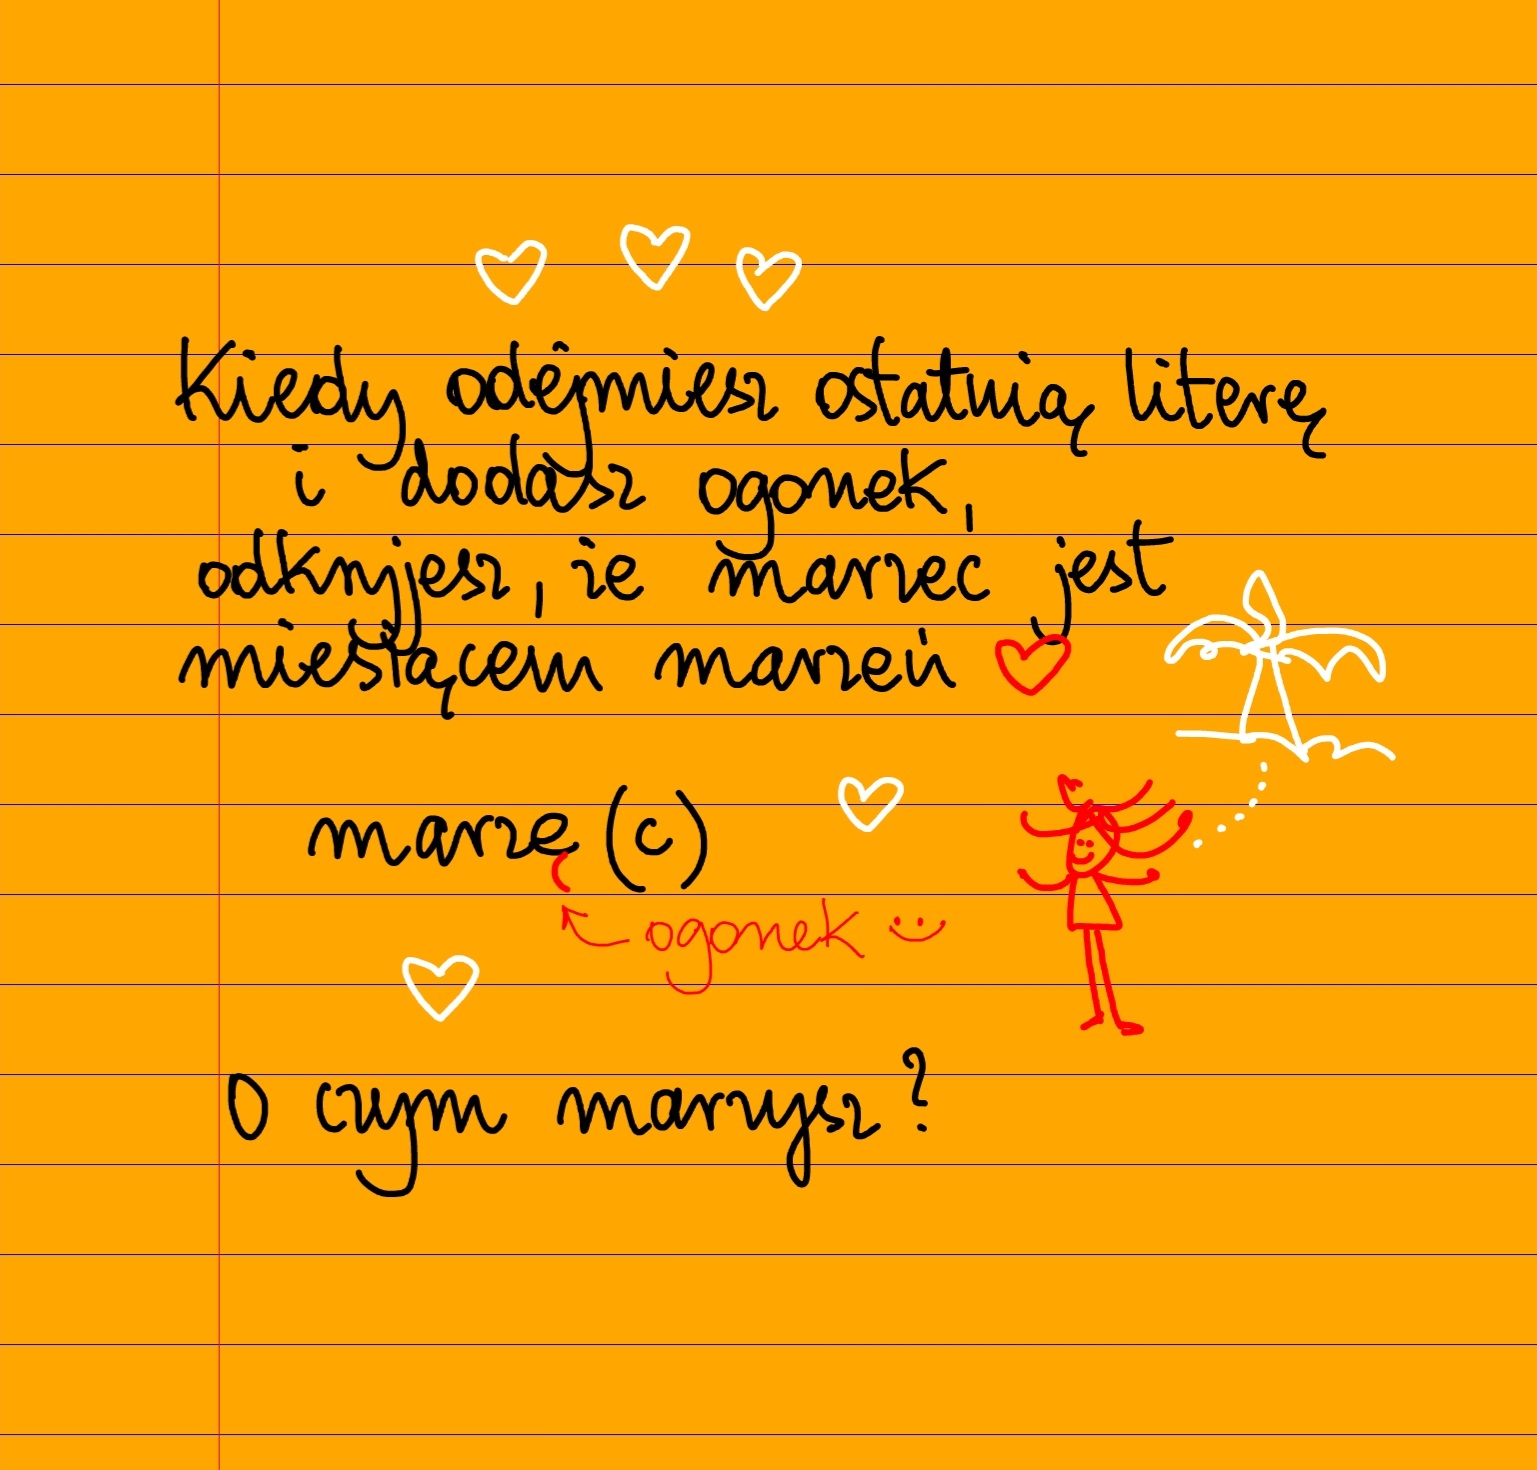 Kiedy odêjmiesz ostatnią literę
i dodasz ogonek,
odkryjesz, że marzec jest
miesiącem marzeń
marze (c)
ogonek
O czym marzysz?